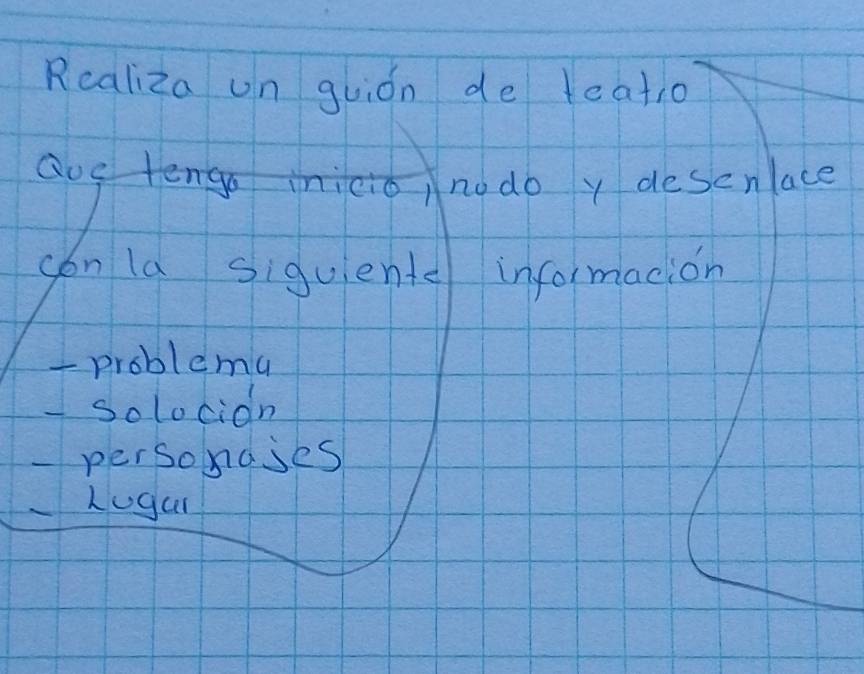 Realiza un guión de teatro
Que tenga inicio, nudo y desenlace
con la siguiente información
- problema
- Solución
- personajes
- Lugar